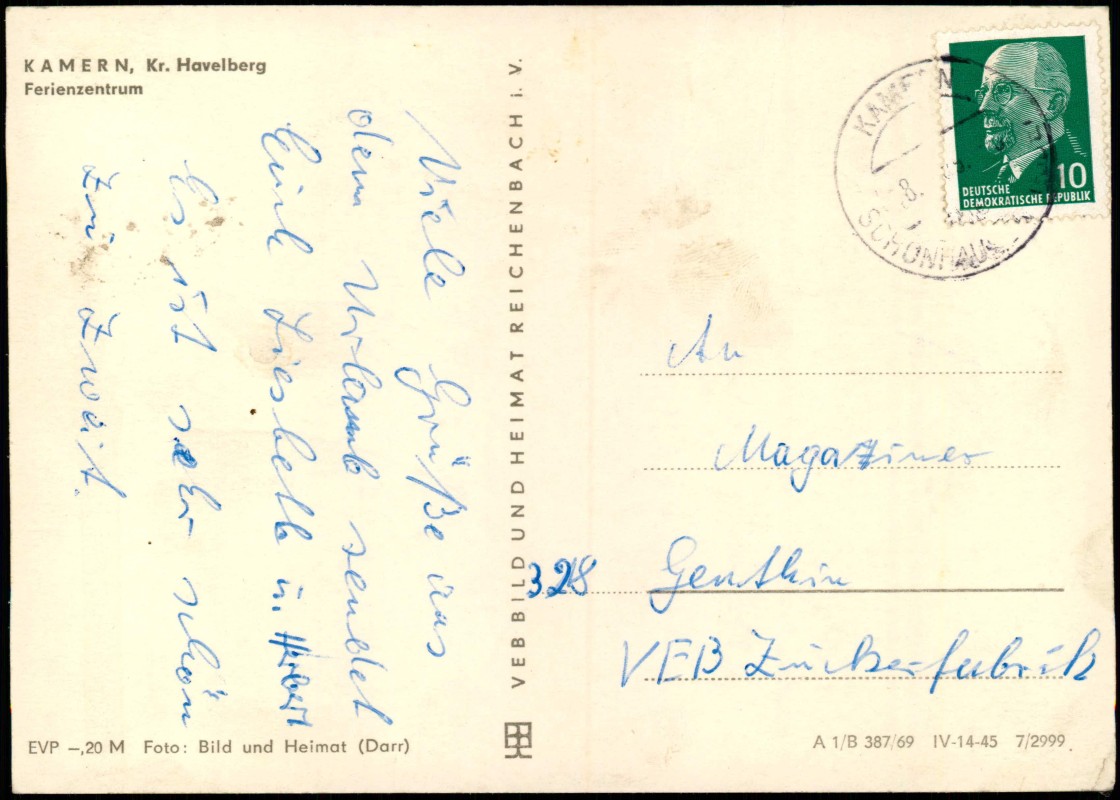 KAMERN, Kr. Havelberg
Ferienzentrum
Viele Grüße aus
dem Urlaub sendet
Euch Liesbeth u. Herbert
Es ist sehr schön
zu zweit.
EVP –,20 M Foto: Bild und Heimat (Darr)
VEB BILD UND HEIMAT REICHENBACH i. V.
KAMERN
8.
SCHÖNHAUS
10
DEUTSCHE
DEMOKRATISCHE REPUBLIK
An
Magaziner
328 Genthin
VEB Zuckerfabrik
A 1/B 387/69 IV-14-45 7/2999